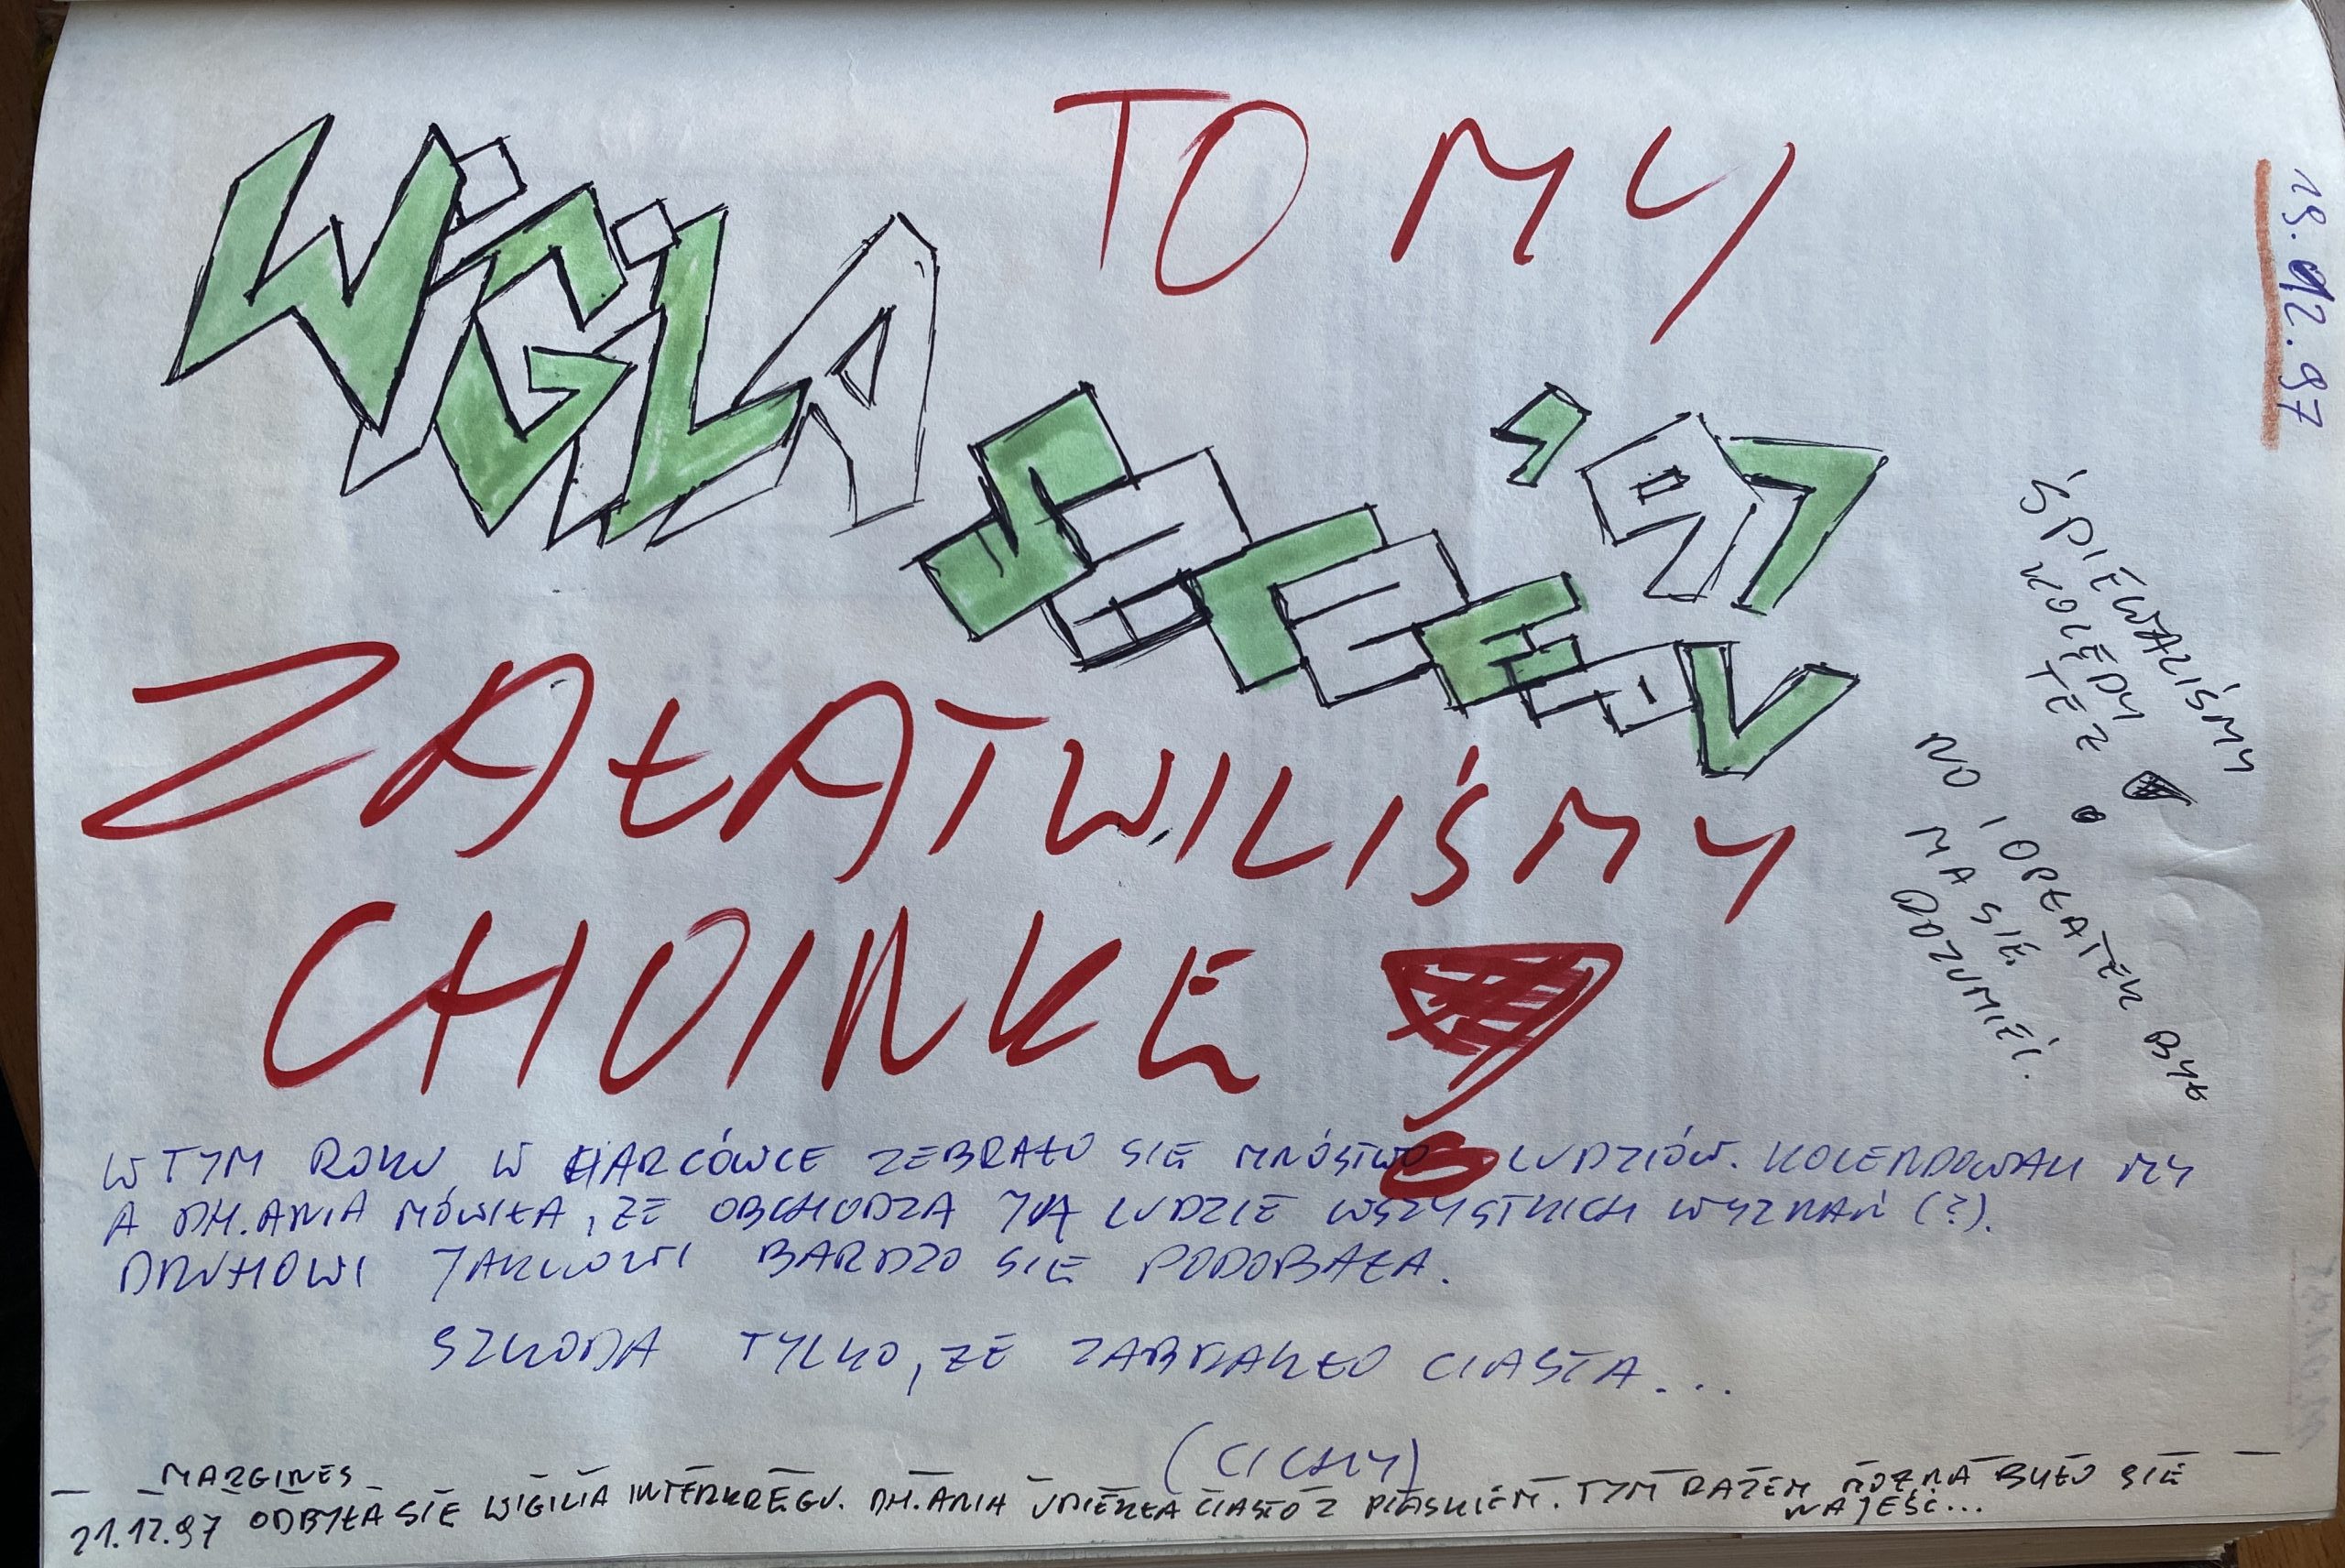 TO MY
WIGILIA
SZCZEPU
'97
ZAŁATWILIŚMY
CHOINKĘ!
19.12.97
ŚPIEWALIŚMY
KOLĘDY
TEŻ!
NO I OPŁATEK BYŁ
MA SIĘ
ROZUMIEĆ.
W TYM ROKU W HARCÓWCE ZEBRAŁO SIĘ MNÓSTWO LUDZIÓW. KOLENDOWALI MY
A DH. ANIA MÓWIŁA, ŻE OBCHODZĄ JĄ LUDZIE WSZYSTKICH WYZNAŃ (?).
DRUHOWI JAKUOWI BARDZO SIĘ PODOBAŁA.
SZKODA TYLKO, ŻE ZABRAKŁO CIASTA...
(CICHY)
MARGINES
21.12.97 ODBYŁA SIĘ WIGILIA INTERKRĘGU. DH. ANIA UPIEKŁA CIASTO Z PIASKIEM. TYM RAZEM MOŻNA BYŁO SIĘ
NAJEŚĆ...